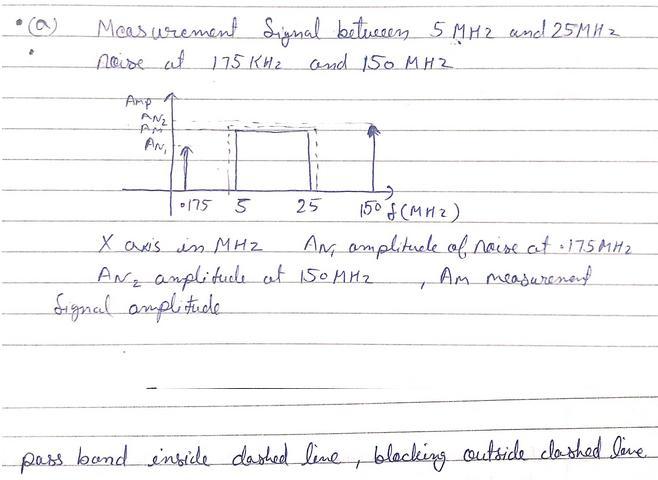 (a) Measurement Signal between 5 MHz and 25MHz
Noise at 175 KHz and 150 MHz
Amp
AN2
AM
AN1
.175 5 25 150 f(MHz)
X axis in MHz AN1 amplitude of noise at .175MHz
AN2 amplitude at 150MHz , AM measurement
Signal amplitude
pass band inside dashed line, blocking outside dashed line